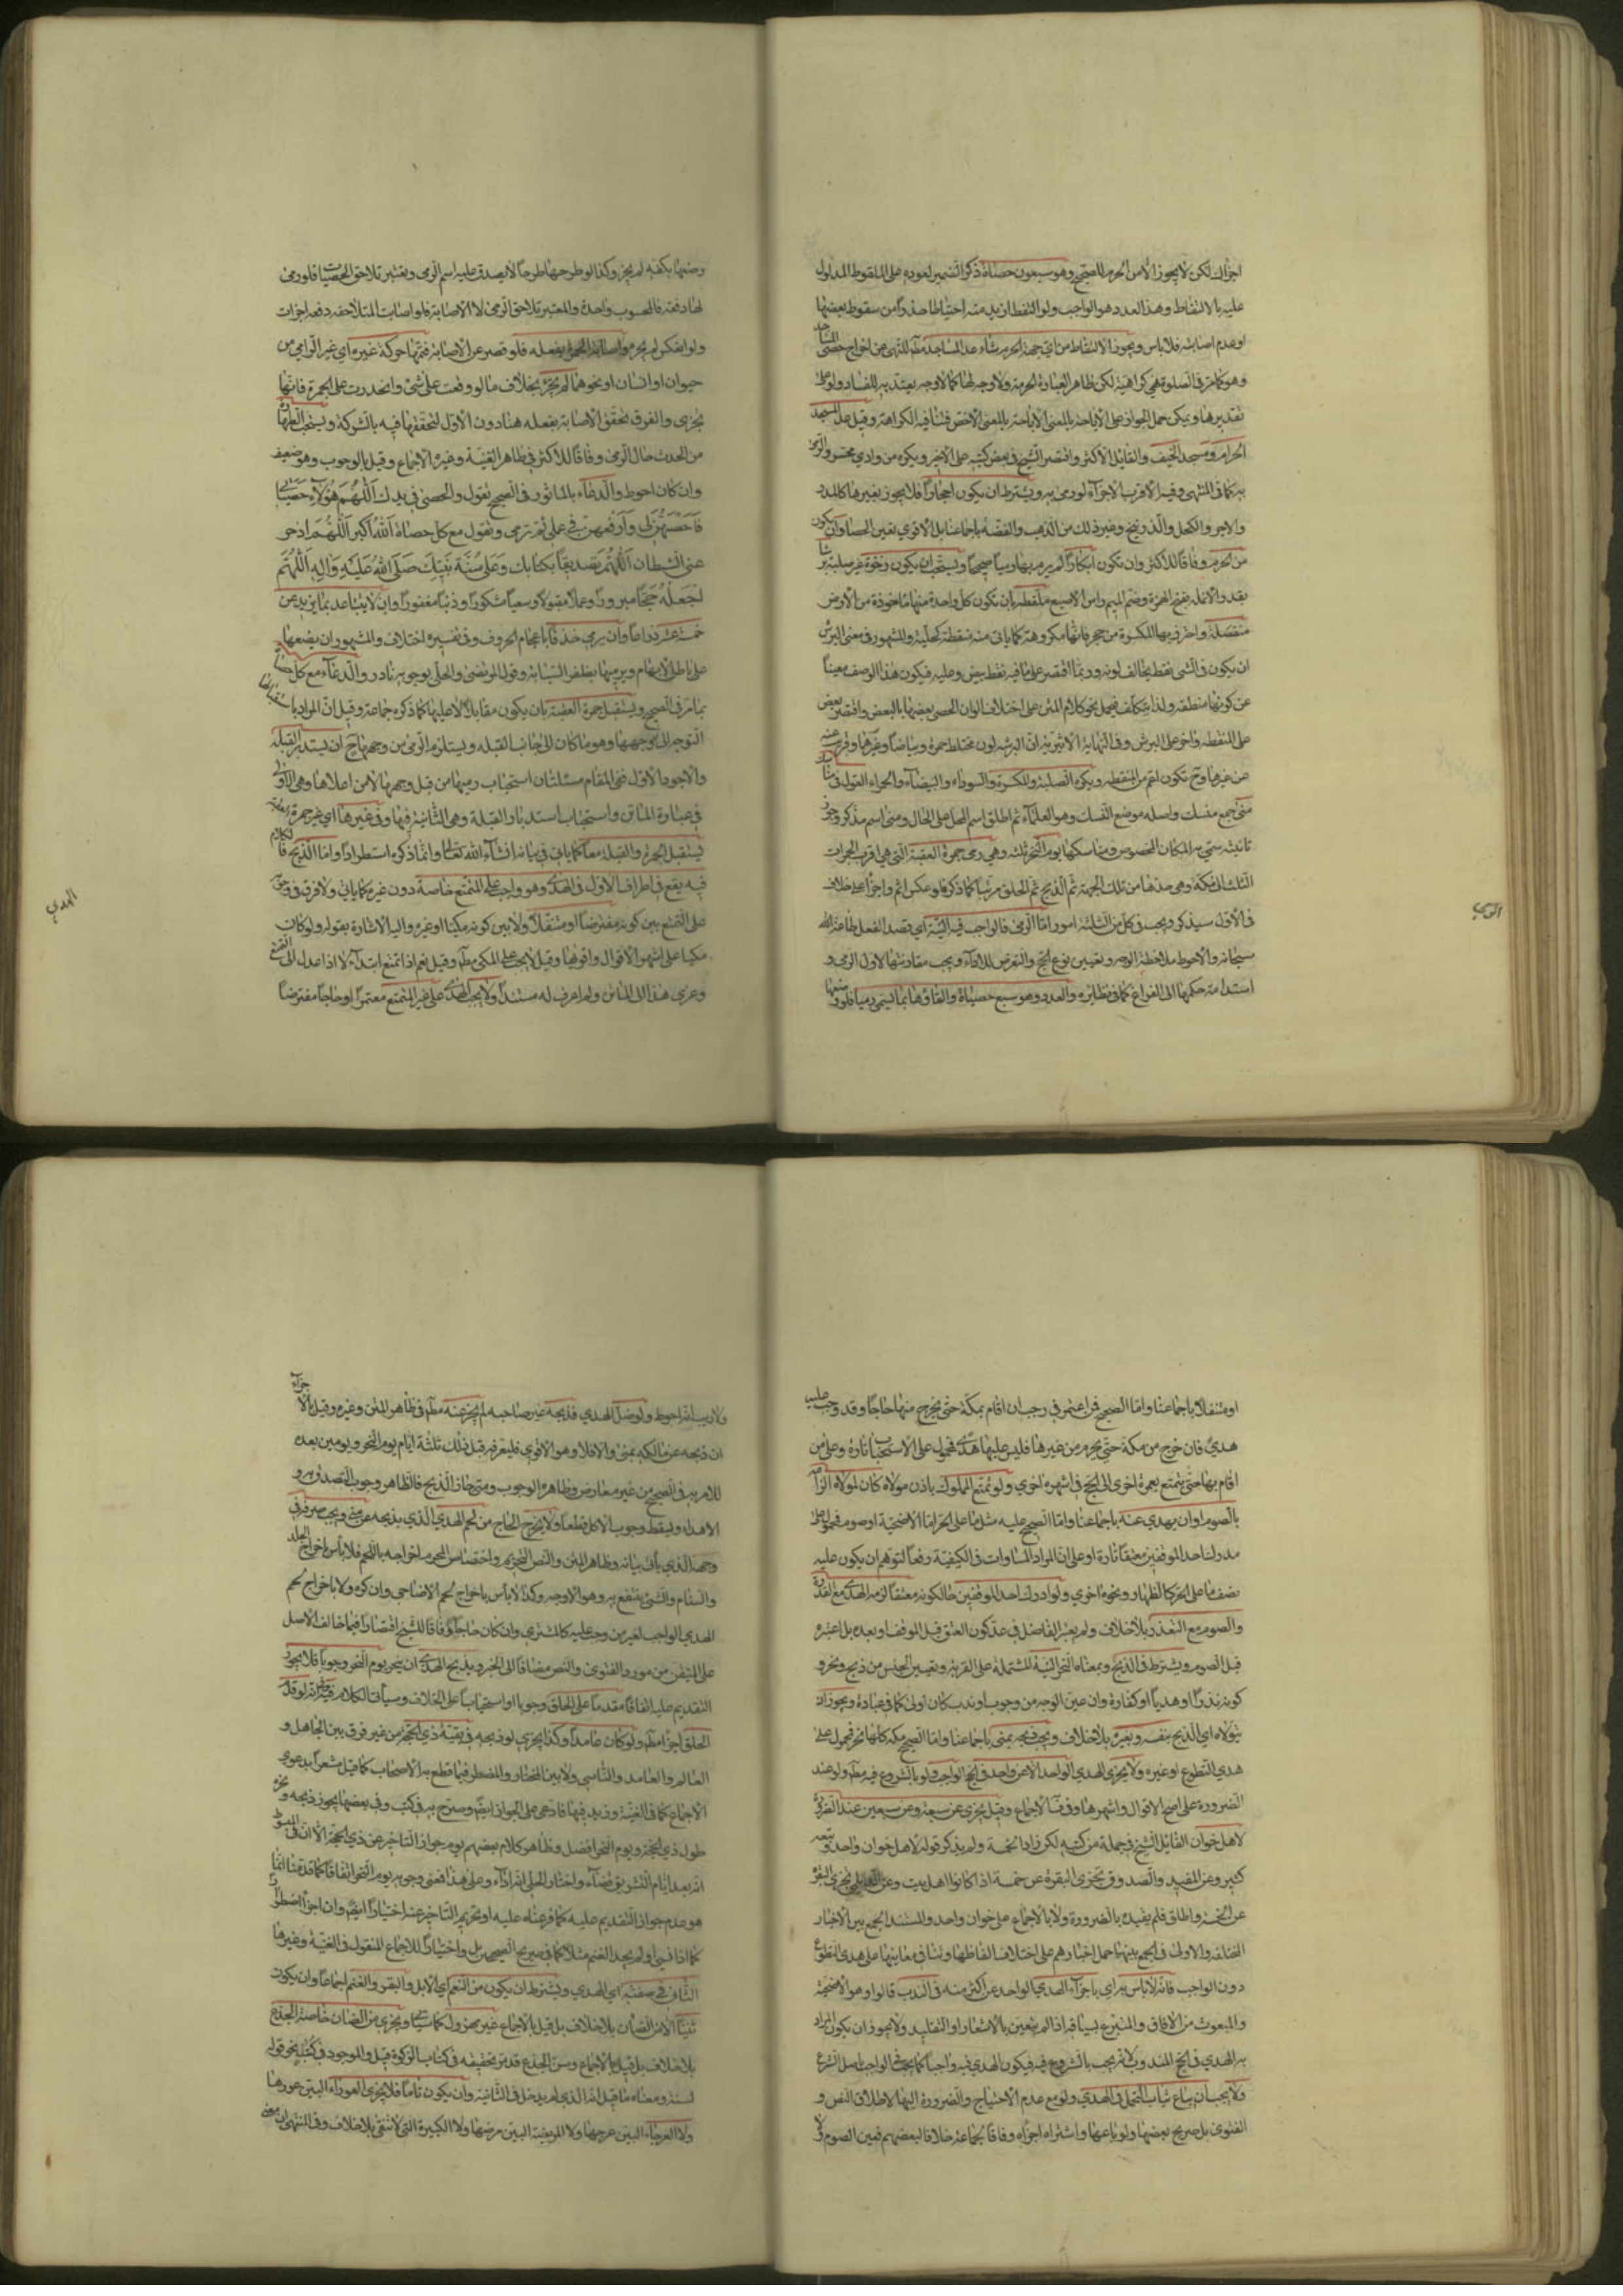 اجزأك لكن لا يجوز الا من الحرم للصحيح وهو سبعون حصاة ذكر الضمير لعوده على الملقوط المدلول
عليه بالالتقاط وهذا العدد هو الواجب ولو التقط ازيد منه احتياطا حذرا من سقوط بعضها
او عدم اصابته فلا باس ويجوز الالتقاط من اي جهة الحرم شاء عدا المساجد مط للنهى عن اخراج حصى المساجد
وهو كما مر في الصلوة هي كراهية لكن ظاهر العبارة الحرمة ولا وجه لها كما لا وجه يعتد به للفساد ولو على
تقديرها ويمكن حمل الجواز على الاباحة بالمعنى الاخص فتنافيه الكراهة وقيل عدا المسجد
الحرام ومسجد الخيف والقائل الاكثر واقتصر الشيخ في بعض كتبه على الاخير ويكره من وادي محسر والرمى
به كما في المنتهى وفيه الاقرب الاجزاء لو رمى به ويشترط ان يكون احجارا فلا يجوز بغيرها كالمدر
والاجر والكحل والزرنيخ وغير ذلك من الذهب والفضة باجماعنا بل الاقوى تعين الحصا وان يكون
من الحرم وفاقا للاكثر وان تكون ابكارا لم يرم بها رميا صحيحا ويستحب ان يكون رخوة غير صلبة برشا
بقدر الانملة بفتح الهمزة وضم الميم راس الاصبع ملتقطة بان تكون كل واحدة منها ماخوذة من الارض
منفصلة واحترز بها المكسرة من حجر فانها مكروهة كما ياتى منه منقطة كحلية والمشهور في معنى البرش
ان يكون في الشى نقط يخالف لونه وربما اقتصر على ما فيه نقط بيض وعليه فيكون هذا الوصف مغنيا
عن كونها منقطة ولذا يتكلف فيحمل نحو كلام المتن على اختلاف الوان الحصى بعضها لبعض واقتصر بعض
على المنقطة واخر على البرش وفي النهاية الاثيرية ان البرشة لون مختلط حمرة وبياضا وغيرهما وقريب منه
عن غيرها وح تكون اعم من المنقطة ويكره الصلبة والمكسرة والسوداء والبيضاء والحمراء القول في مناسك
منى جمع منسك واصله موضع النسك وهو العبادة ثم اطلق اسم المحل على الحال ومنى اسم مذكر وجوز
تانيثه سمى به المكان المخصوص ومناسكها يوم النحر ثلثة وهى رمى جمرة العقبة التى هى اقرب الجمرات
الثلث الى مكة وهى حدها من تلك الجهة ثم الذبح ثم الحلق مرتبا كما ذكر فلو عكس اثم واجزا على خلاف
في الاول سيذكر ويجب في كل من الثلثة امور اما الرمى فالواجب فيه النية اي قصد الفعل طاعة لله
سبحانه والاحوط ملاحظة الوجه وتعيين نوع الحج والتعرض للاداء ويجب مقارنتها لاول الرمى و
استدامة حكمها الى الفراغ كما في نظايره والعدد وهو سبع حصياة والقاؤها بما يسمى رميا فلو وضعها
الرمي
وضعها بكفه لم يجز وكذا لو طرحها طرحا لا يصدق عليه اسم الرمى ويعتبر تلاحق الحصيات فلو رمى
بها دفعة فالمحسوب واحدة والمعتبر تلاحق الرمى لا الاصابة فلو اصابت المتلاحقة دفعة اجزات
ولو انعكس لم يجز واصابة الجمرة بفعله فلو قصر عن الاصابة فتممها حركة غيره اي غير الرامي من
حيوان او انسان او نحوهما لم يجز بخلاف ما لو وقعت على شى وانحدرت على الجمرة فانها
يجزى والفرق تحقق الاصابة بفعله هنا دون الاول لتحققها فيه بالشركة ويستحب الطهارة
من الحدث حال الرمى وفاقا للاكثر في ظاهر الغنية وغيره الاجماع وقيل بالوجوب وهو ضعيف
وان كان احوط والدعاء بالماثور في الصحيح تقول والحصى في يدك اللهم هؤلاء حصياتى
فاحصهن لى وارفعهن في عملى ثم ترمى وتقول مع كل حصاة الله اكبر اللهم ادحر
عني الشيطان اللهم تصديقا بكتابك وعلى سنة نبيك صلى الله عليه واله اللهم
اجعله حجا مبرورا وعملا مقبولا وسعيا مشكورا وذنبا مغفورا وان لا يتباعد بما يزيد عن
خمسة عشر ذراعا وان يرمى خذفا باعجام الحروف وفي تفسيره اختلاف والمشهور ان يضعها
على باطن الابهام ويرميها بظفر السبابة وقول المرتضى والحلى بوجوبه نادر والدعاء مع كل حصاة
بما مر في الصحيح ويستقبل جمرة العقبة بان يكون مقابلا لا عاليها كما ذكره جماعة وقيل ان المراد باستقبالها
التوجه الى وجهها وهو ما كان الى جانب القبلة ويستلزم الرمى من وجهها ح ان يستدبر القبلة
والاجود الاول ففى المقام مسئلتان استحباب رميها من قبل وجهها لا من اعلاها وهى الاولى
في عبارة الماتن واستحباب استدبار القبلة وهى الثانية فيها وفى غيرها اي غير جمرة العقبة
يستقبل الجمرة والقبلة معا كما ياتى في بيانه انشاء الله تعالى وانما ذكره استطرادا واما الذبح فالكلام
فيه يقع في اطراف الاول في الهدي وهو واجب على المتمتع خاصة دون غيره كما ياتي ولا فرق في وجوبه
على المتمتع بين كونه مفترضا او متنفلا ولا بين كونه مكيا او غيره واليه الاشارة بقوله ولو كان
مكيا على اشهر الاقوال واقويها وقيل لا يجب على المكى مط وقيل نعم اذا تمتع ابتداء لا اذا عدل الى التمتع
وعزى هذا الى الماتن ولم اعرف له مستندا ولا يجب الهدي على غير المتمتع معتمرا او حاجا مفترضا
الهدي
او متنفلا باجماعنا واما الصحيح فمن اعتمر في رجب ان اقام بمكة حتى يخرج منها حاجا وقد وجب عليه
هدى فان خرج من مكة حتى يحرم من غيرها فليس عليها هدى فمحمول على الاستحباب تارة وعلى من
اقام بها حتى يتمتع بعمرة اخرى الى الحج في اشهره اخرى ولو تمتع المملوك باذن مولاه كان لمولاه الزامه
بالصوم او ان يهدي عنه باجماعنا واما الصحيح عليه مثل ما على الحر اما الاضحية او صوم فمحمول على
مدرك احد الموقفين معتقا تارة او على ان المراد المساوات في الكيفية رفعا لتوهم ان يكون عليه
نصف ما على الحر كالظهار ونحوه اخرى ولو ادرك احد الموقفين حالكونه معتقا لزمه الهدى مع القدرة
والصوم مع التعذر بلا خلاف ولم يعتبر الفاضل في عد كون العتق قبل الموقف وبعده بل اعتبره
قبل الصوم ويشترط في الذبح وبمعناه النحر النية المشتملة على القربة وتعيين الجنس من ذبح ونحر و
كونه نذرا او هديا او كفارة وان عين الوجه من وجوب او ندب كان اولى كما في عبادة ويجوز ان
يتولاه اي الذبح بنفسه وبغيره بلا خلاف ويجب ذبحه بمنى باجماعنا واما الصحيح مكة كلها نحر فمحمول على
هدي التطوع او غيره ولا يجزى الهدي الواحد الا عن واحد في الحج الواجب ولو بالشروع فيه مط ولو عند
الضرورة على اصح الاقوال واشهرها وفى الاجماع وقيل يجزي عن سبعة وعن سبعين عند الضرورة
لاهل خوان القائل الشيخ في جملة من كتبه لكن زاد الخمسة ولم يذكر قوله لاهل خوان واحد وتبعه
كثير وعن المفيد والصدوق تجزى البقرة عن خمسة اذا كانوا اهل بيت وعن الديلمي تجزي البقرة
عن خمسة واطلق فلم يقيده بالضرورة ولا بالاجماع على خوان واحد والمستند الجمع بين الاخبار
المختلفة والاولى في الجمع بينها حمل اخبارهم على اختلاف الفاظها وتنافى معانيها على هدي التطوع
دون الواجب فانه لا باس به اي باجزاء الهدي الواحد عن اكثر منه في الندب قالوا وهو الاضحية
والمبعوث من الافاق والمتبرع بسياقه اذا لم يتعين بالاشعار او التقليد ولا يجوز ان يكون المراد
به الهدي في الحج المندوب لانه يجب بالشروع فيه فيكون الهدي فيه واجبا كما يجب في الواجب باصل الشرع
ولا يجب ان يباع ثياب التجمل في الهدي ولو مع عدم الاحتياج والضرورة اليها لاطلاق النص و
الفتوى بل صريح بعضها ولو باعها واشتراه اجزاه وفاقا لجماعة خلافا لبعضهم فعين الصوم ولا
ولا ريب انه احوط ولو ضل الهدي فذبحه غير صاحبه لم يجز عنه مط في ظاهر المتن وغيره وقيل بالاجزاء
ان ذبحه عن مالكه بمنى والا فلا وهو الاقوى فليعرفه قبل ذلك ثلثة ايام يوم النحر ويومين بعده
للامر به في الصحيح من غير معارض وظاهره الوجوب ومتى جاز الذبح فالظاهر وجوب التصدق به و
الاهداء ويسقط وجوب الاكل قطعا ولا يخرج الحاج من لحم الهدي الذي يذبحه عن منى ويجب صرفه في
وجهه الذي ياتى بيانه وظاهر المتن والنص التحريم واختصاص المحرم اخراجه باللحم فلا باس باخراج الجلد
والسنام والشئ ينتفع به وهو الاوجه وكذا لا باس باخراج لحم الاضاحي وان كره ولا باخراج لحم
الهدي الواجب لغير من وجب عليه كالمشترى وان كان حاجا وفاقا للشيخ اقتصارا فيما خالف الاصل
على المتيقن من مورد الفتوى والنص مضافا الى الخبر ويذبح الهدى ان ينحر يوم النحر وجوبا فلا يجوز
التقديم عليه اتفاقا مقدما على الحلق وجوبا او استحبابا على الخلاف وسيأتى الكلام فيه وانه لو قدم
الحلق اجزا مط ولو كان عامدا وكذا يجزي لو ذبحه في بقية ذي الحجة من غير فرق بين الجاهل و
العالم والعامد والناسى ولا بين المختار والمضطر فيما قطع به الاصحاب كما قيل مشعرا بدعوى
الاجماع كما في الغنية وزيد فيها فادعى على الجواز ايضا وصرح به في كتب وفى بعضها يجوز ذبحه ونحره
طول ذي الحجة ويوم النحر افضل وظاهر كلام بعضهم يوهم جواز التاخير عن ذي الحجة الا ان في المبسوط
انه بعد ايام التشريق قضاء واختار الحلى انه اداء وعلى هذا فمعنى وجوبه يوم النحر اتفاقا كما قدمنا انما
هو عدم جواز التقديم عليه كما فرعناه عليه او تحريم التاخير عنه اختيارا ايضا وان اجزا اضطرارا
كما اذا نسى او لم يجد الغنم مثلا كما في صريح الصحيحين بل واختيارا للاجماع المنقول في الغنية وغيرها
الثانى في صفته اي الهدي ويشترط ان يكون من النعم اي الابل والبقر والغنم اجماعا وان يكون
ثنيا الا من الضأن بلا خلاف بل قيل بالاجماع غير مهزول كما سيأتى ويجزي من الضان خاصة الجذع
بلا خلاف بل قيل بالاجماع وسن الجذع قد مر تحقيقه في كتاب الزكوة قيل والموجود في كتب نحو قوله
لسنته ومعناه ما قيل انه الذي لم يدخل في الثانية وان يكون تاما فلا يجزى العوراء البين عورها
ولا العرجاء البين عرجها ولا المريضة البين مرضها ولا الكبيرة التى لا تنقى بلا خلاف وفى المنتهى ان معنى